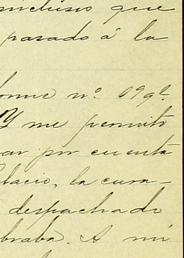 inclusive que
pasado á la
forme nº. 699ª.
Y me permito
ar por cuenta
lacio, la cura-
despachado
braba. A mi